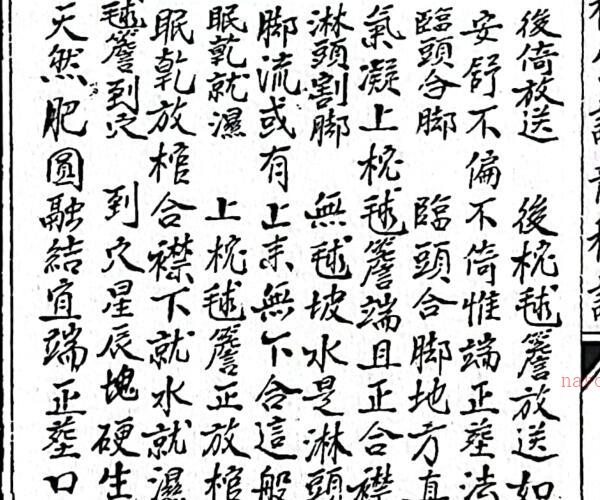 後倚放送　後枕毬簷放送如
安舒不偏不倚惟端正葬法
臨頭合脚　臨頭合脚地方真
氣凝上枕毬簷端且正合襟
淋頭割脚　無毬坡水是淋頭
脚流或有上來無下合這般
眠乾就濕　上枕毬簷正放棺
眠乾放棺合襟下就水就濕
毬簷到穴　到穴星辰塊硬生
天然肥圓融結宜端正葬口